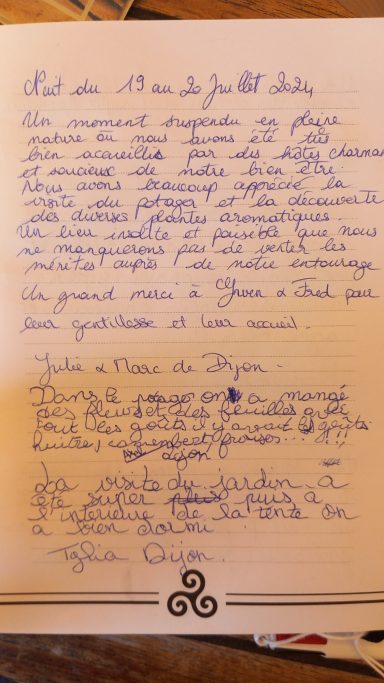 Nuit du 19 au 20 Juillet 2024
Un moment suspendu en pleine
nature où nous avons été très
bien acceuillis par des hôtes charman
et soucieux de notre bien être.
Nous avons beaucoup apprécié la
visite du potager et la découverte
des diverses plantes aromatiques.
Un lieu insolite et paisible que nous
ne manquerons pas de venter les
mérites auprès de notre entourage
Un grand merci à Gwen & Fred pour
leur gentillesse et leur accueil.
Julie & Marc de Dijon.
Dans le on a mangé
des fleurs et des feuilles
tout les goûts il y avait goûts
huitre, camembert, ... !!!
dijon
La visite du jardin a
été super puis a
l'intérieure de la tente on
a bien dormi
Dijon.